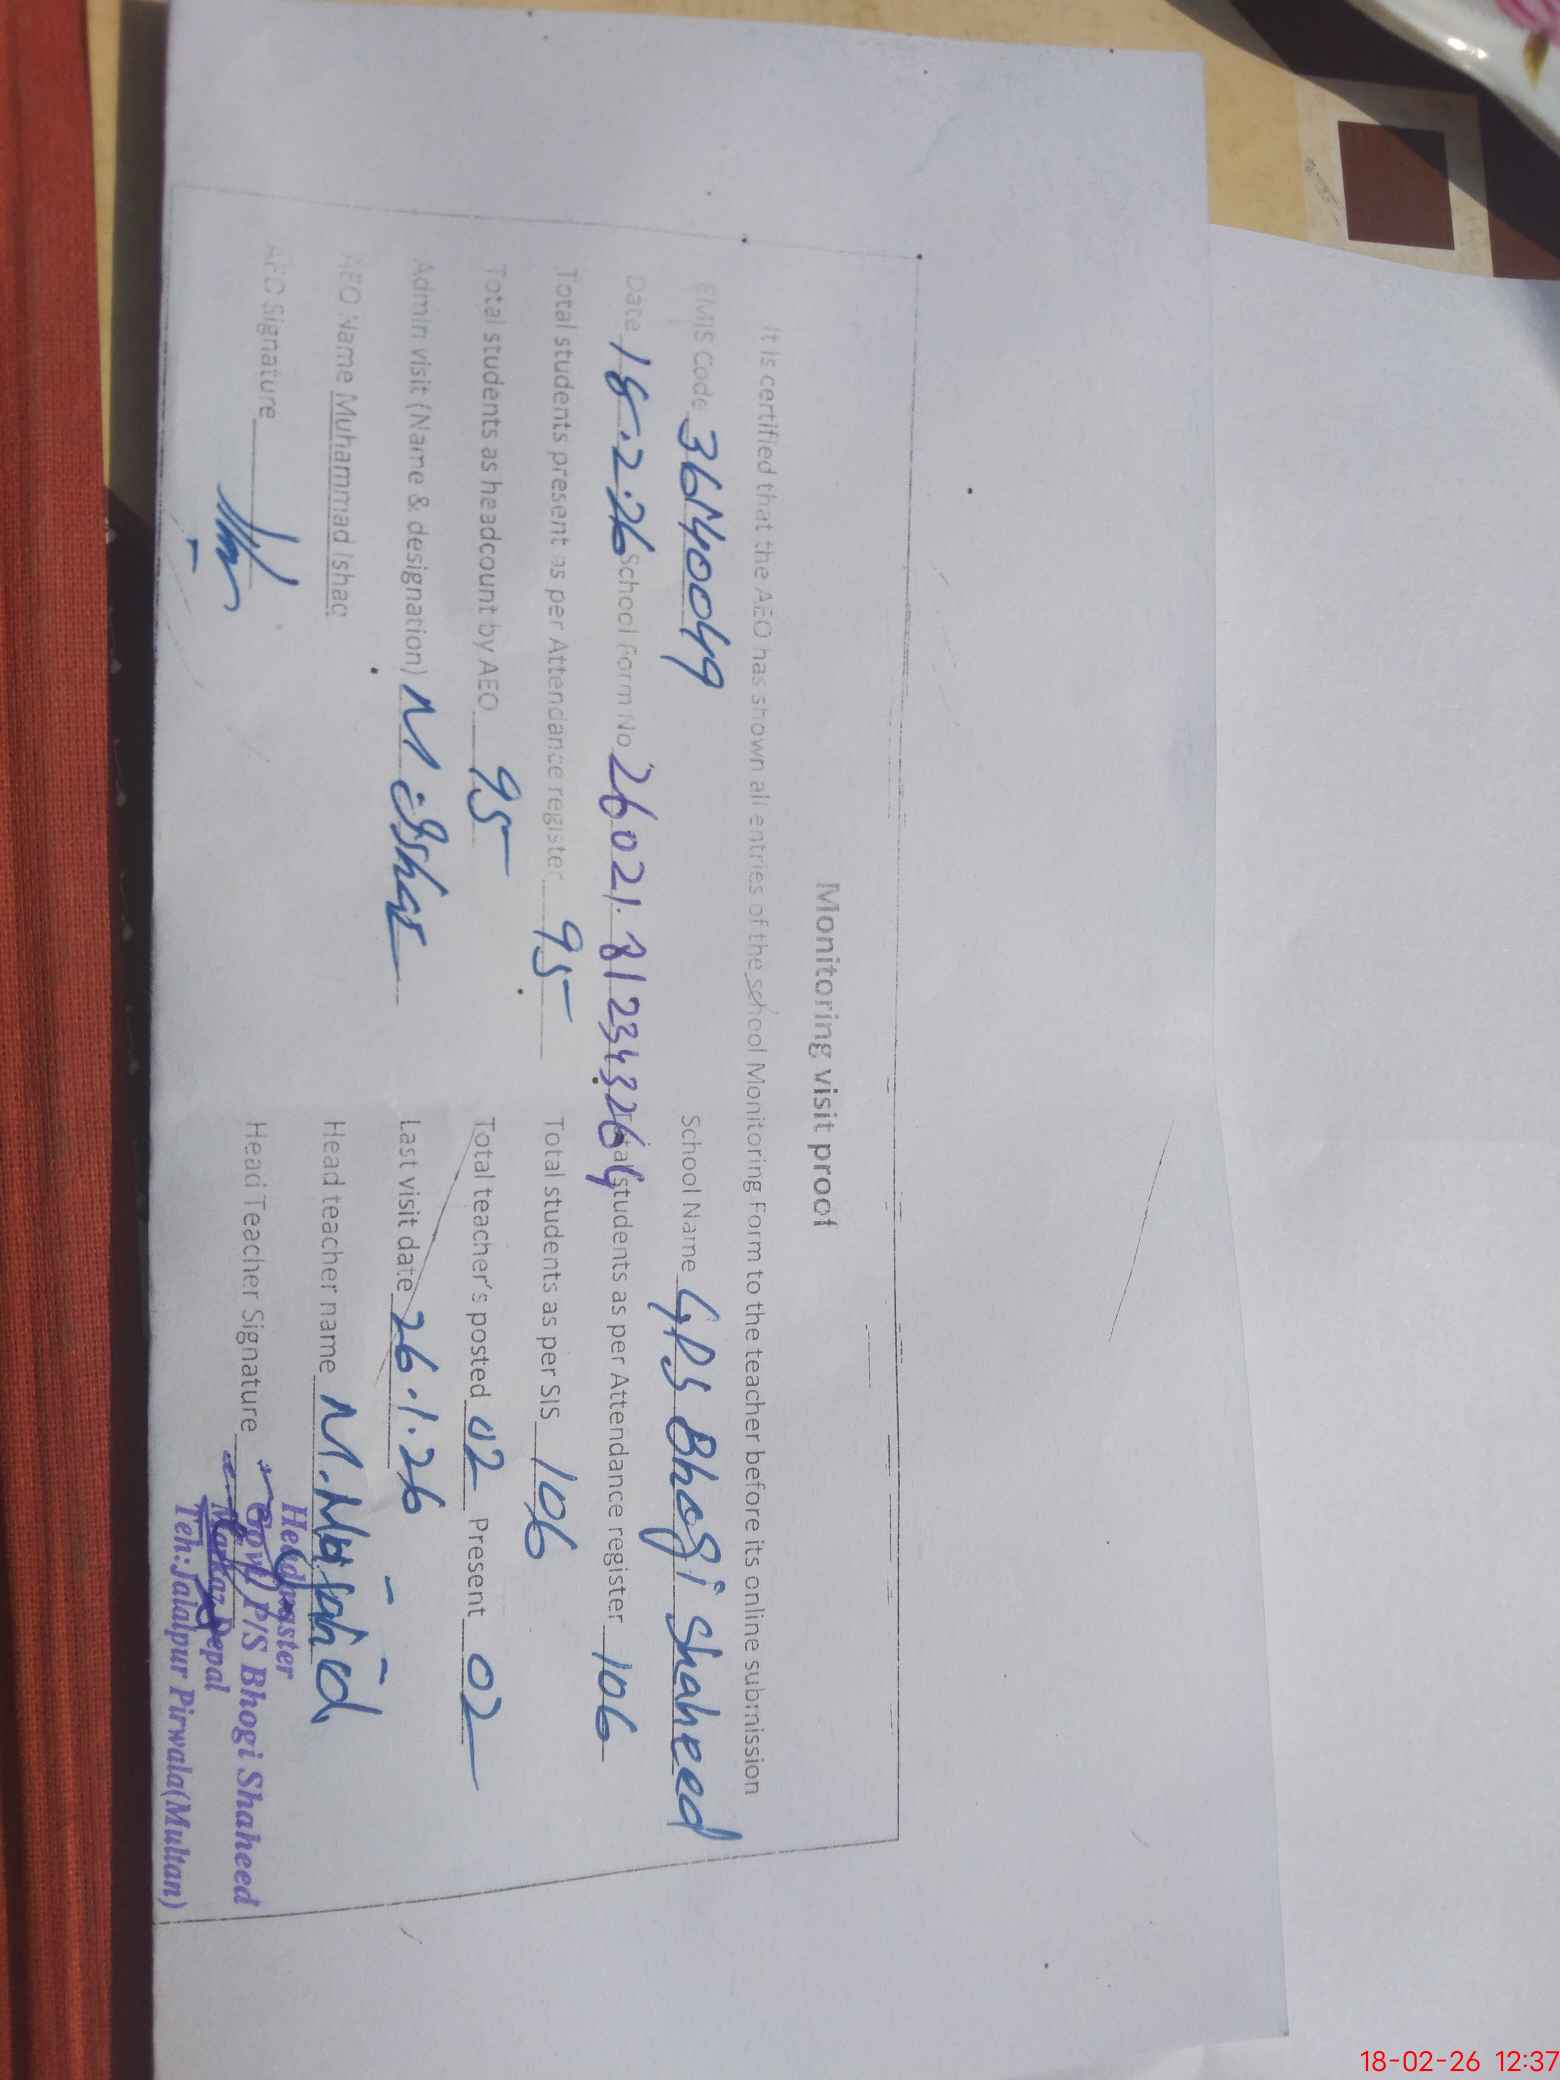 Monitoring visit proof
It is certified that the AEO has shown all entries of the school Monitoring Form to the teacher before its online submission
EMIS Code 36140049 School Name G.P.S Bhogi Shaheed
Date 18.2.26 School Form No 26021812343264 students as per Attendance register 106
Total students present as per Attendance register 95 Total students as per SIS 106
Total students as headcount by AEO 95 Total teacher's posted 02 Present 02
Admin visit (Name & designation) M. Ishaq Last visit date 26.1.26
AEO Name Muhammad Ishaq Head teacher name M. Majahid
AEO Signature Head Teacher Signature
Headmaster
Govt P/S Bhogi Shaheed
Markaz Depal
Teh:Jalalpur Pirwala(Multan)
18-02-26 12:37